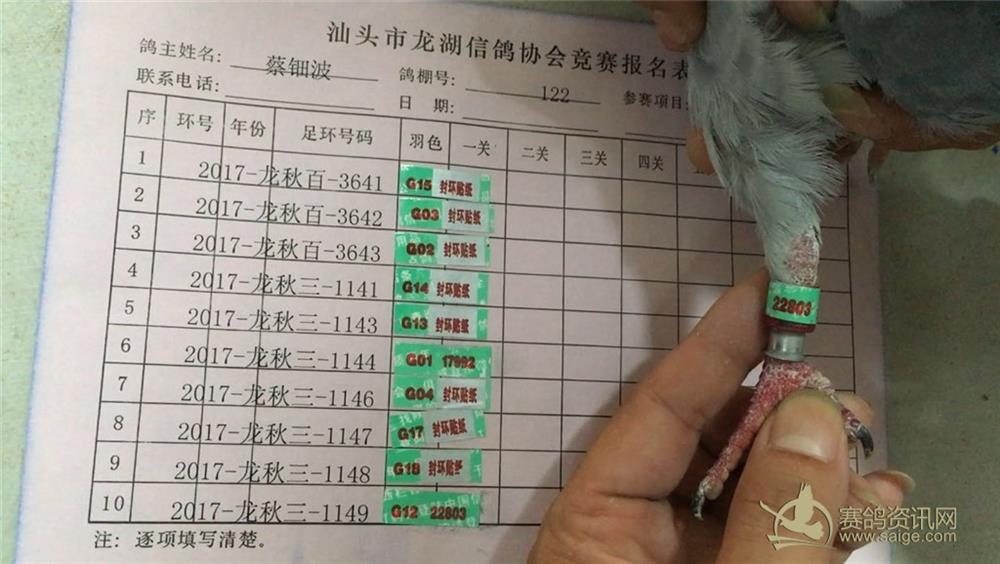 汕头市龙湖信鸽协会竞赛报名表
鸽主姓名: 蔡钿波 鸽棚号: 122 参赛项目:
联系电话: 日 期:
序 环号 年份 足环号码 羽色 一关 二关 三关 四关
1 2017-龙秋百-3641 G15 封环贴纸
2 2017-龙秋百-3642 G03 封环贴纸
3 2017-龙秋百-3643 G02 封环贴纸
4 2017-龙秋三-1141 G14 封环贴纸
5 2017-龙秋三-1143 G13 封环贴纸
6 2017-龙秋三-1144 G01 17992
7 2017-龙秋三-1146 G04 封环贴纸
8 2017-龙秋三-1147 G17 封环贴纸
9 2017-龙秋三-1148 G18 封环贴纸
10 2017-龙秋三-1149 G12 22803
注: 逐项填写清楚。
22803
赛鸽资讯网
www.saige.com